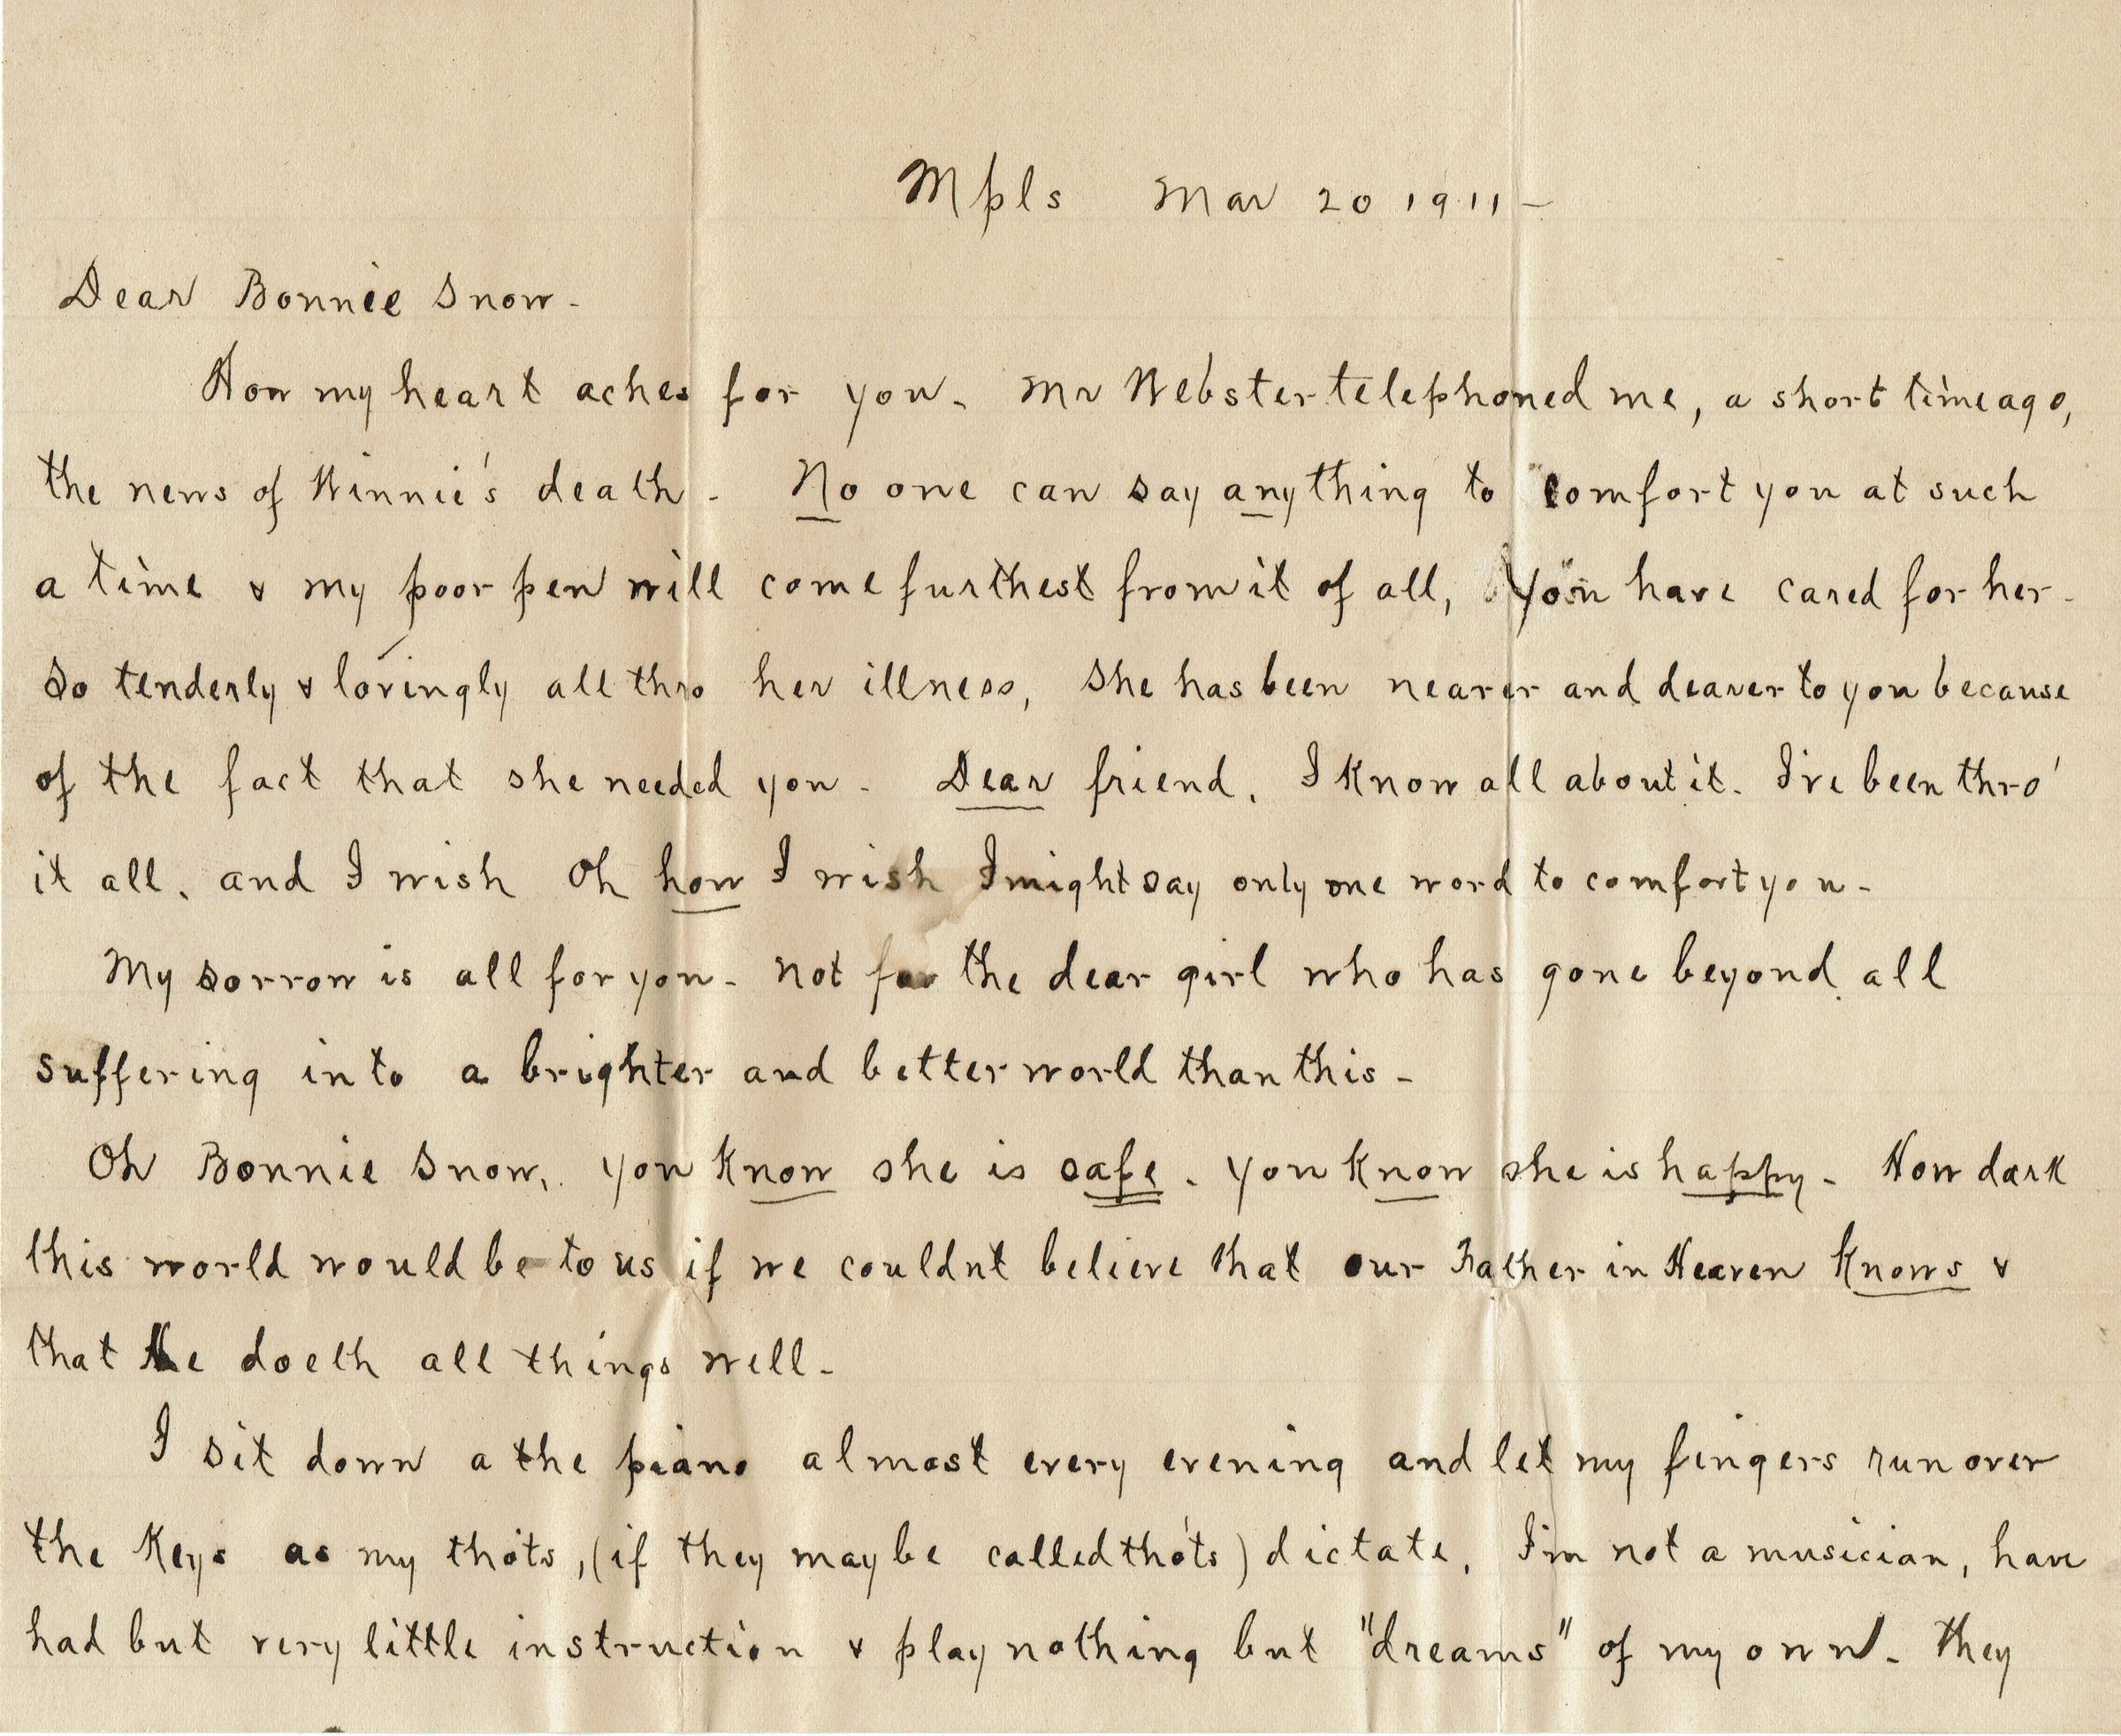 Mpls Mar 20 1911 -
Dear Bonnie Snow -
How my heart aches for you. Mr Webster telephoned me, a short time ago,
the news of Winnie's death - No one can say anything to comfort you at such
a time & my poor pen will come furthest from it of all, You have cared for her -
so tenderly & lovingly all thro her illness, She has been nearer and dearer to you because
of the fact that she needed you - Dear friend, I know all about it. I've been thro'
it all, and I wish Oh how I wish I might say only one word to comfort you -
My sorrow is all for you - not for the dear girl who has gone beyond all
suffering into a brighter and better world than this -
Oh Bonnie Snow, you know she is safe. you know she is happy - How dark
this world would be to us if we couldnt believe that our Father in Heaven knows &
that He doeth all things well -
I sit down a the piano almost every evening and let my fingers run over
the keys as my tho'ts, (if they may be called tho'ts) dictate. I'm not a musician, have
had but very little instruction & play nothing but "dreams" of my own - They